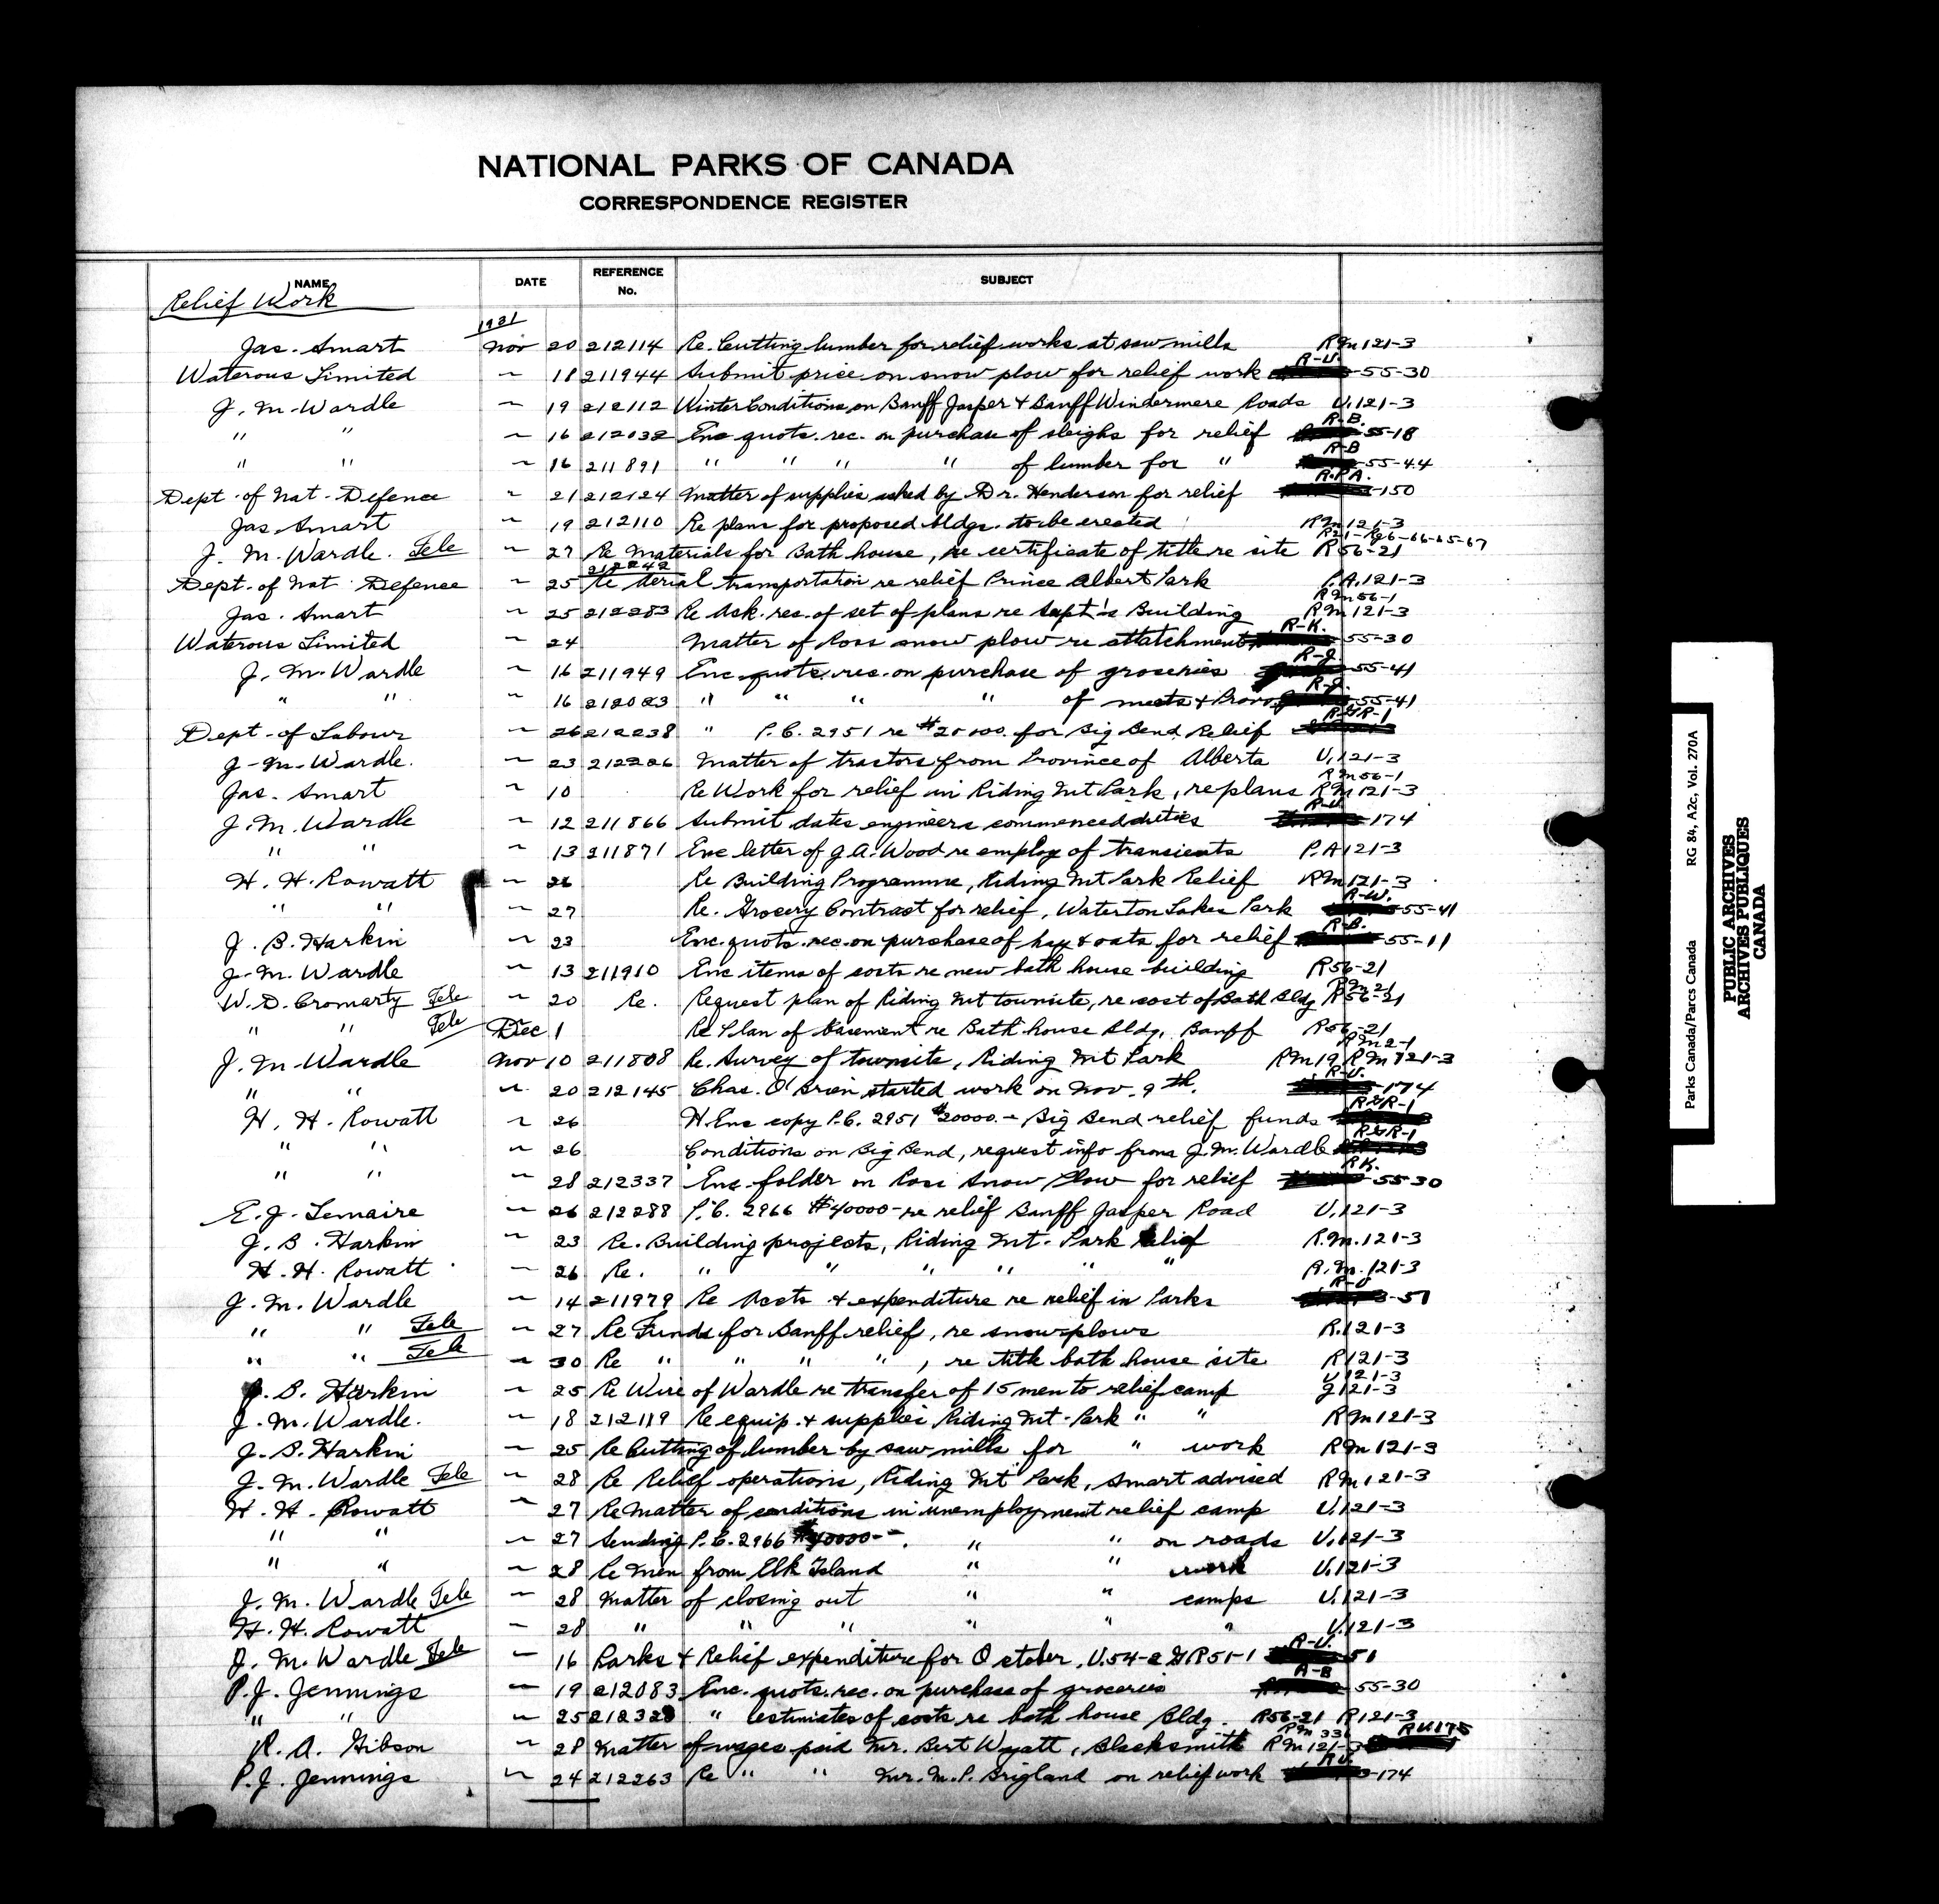 NATIONAL PARKS OF CANADA
CORRESPONDENCE REGISTER
NAME DATE REFERENCE No. SUBJECT
Relief Work
1931
Jas. Smart Nov 20 212114 Re. Cutting lumber for relief works at saw mills RM121-3
Waterous Limited " 18 211944 Submit price on snow plow for relief work R-U. 55-30
J. M. Wardle " 19 212112 Winter Conditions on Banff Jasper & Banff Windermere Roads U.121-3
" " " 16 212032 Enc quots. rec. on purchase of sleighs for relief R-B. 55-18
" " " 16 211891 " " " " of lumber for " R-B 55-44
Dept. of Nat. Defence " 21 212124 Matter of supplies asked by Dr. Henderson for relief R.P.A. 150
Jas Smart " 19 212110 Re plans for proposed bldgs. to be erected RM121-3
J. M. Wardle. Tele " 27 Re Materials for Bath house, re certificate of title re site R56-21
Dept. of Nat. Defence " 25 212242 Re Aerial transportation re relief Prince Albert Park P.A.121-3
Jas. Smart " 25 212283 Re Ask. rec. of set of plans re Supt's Building RM56-1 RM121-3
Waterous Limited " 24 Matter of Ross snow plow re attatchment R-K. 55-30
J. M. Wardle " 16 211949 Enc quots. rec. on purchase of groceries R-J. 55-41
" " " 16 212023 " " " " of meats & Provs R-J. 55-41
Dept. of Labour " 26 212238 " P.C. 2951 re $20000. for Big Bend Relief R-GR-1
J. M. Wardle. " 23 212226 Matter of tractors from Province of Alberta U.121-3
Jas. Smart " 10 Re Work for relief in Riding Mt Park, re plans RM56-1 RM121-3
J. M. Wardle " 12 211866 Submit dates engineers commenced duties R-U. 174
" " " 13 211871 Enc letter of J.A. Wood re employ of transients P.A121-3
H. H. Rowatt " 26 Re Building Programme, Riding Mt Park Relief RM121-3
" " " 27 Re. Grocery Contract for relief, Waterton Lakes Park R-W. 55-41
J. B. Harkin " 23 Enc. quots. rec. on purchase of hay & oats for relief R-B. 55-11
J. M. Wardle " 13 211910 Enc items of costs re new bath house building R56-21
W. D. Cromarty Tele " 20 Re. Request plan of Riding Mt townsite, re cost of Bath Bldg RM21 R56-21
" " Tele Dec 1 Re Plan of basement re Bath house Bldg, Banff R56-21
J. M. Wardle Nov 10 211808 Re. Survey of townsite, Riding Mt Park RM2-1 RM19 RM121-3
" " " 20 212145 Chas. O'Brien started work on Nov. 9th. R-U. 174
H. H. Rowatt " 26 Enc copy P.C. 2951 $20000.- Big Bend relief funds R-GR-1
" " " 26 Conditions on Big Bend, request info from J.M. Wardle R-GR-1
" " " 28 212337 Enc folder on Ross Snow Plow for relief R-K. 55 30
E. J. Lemaire " 26 212288 P.C. 2966 $40000- re relief Banff Jasper Road U.121-3
J. B. Harkin " 23 Re. Building projects, Riding Mt. Park relief R.M.121-3
H. H. Rowatt " 26 Re. " " " " " " R.M.121-3
J. M. Wardle " 14 211979 Re Accts & expenditure re relief in Parks R-U 51
" " Tele " 27 Re Funds for Banff relief, re snowplows R.121-3
" " Tele " 30 Re " " " " , re title bath house site R121-3
J. B. Harkin " 25 Re Wire of Wardle re transfer of 15 men to relief camp U121-3 J121-3
J. M. Wardle. " 18 212119 Re equip. & supplies Riding Mt. Park " " RM121-3
J. B. Harkin " 25 Re Cutting of lumber by saw mills for " work RM121-3
J. M. Wardle Tele " 28 Re Relief operations, Riding Mt Park, Smart advised RM121-3
H. H. Rowatt " 27 Re Matter of conditions in unemployment relief camp U.121-3
" " " 27 Sending P.C. 2966 $40000-. " " on roads U.121-3
" " " 28 Re Men from Elk Island " " work U.121-3
J. M. Wardle Tele " 28 Matter of closing out " " camps U.121-3
H. H. Rowatt " 28 " " " " " " U.121-3
J. M. Wardle Tele " 16 Parks & Relief expenditure for October, U.54-2 GR51-1 R-U. 51
P. J. Jennings " 19 212083 Enc. quots. rec. on purchase of groceries 55-30
" " " 25 212328 " estimates of costs re bath house Bldg. R56-21 R121-3
R. A. Gibson " 28 Matter of wages paid Mr. Bert Wyatt, Blacksmith RM121-3 RU175
P. J. Jennings " 24 212263 Re " " Mr. M. P. Brigland on relief work R-U. 174
Parks Canada/Parcs Canada RG 84, A2c, Vol. 270A
PUBLIC ARCHIVES
ARCHIVES PUBLIQUES
CANADA